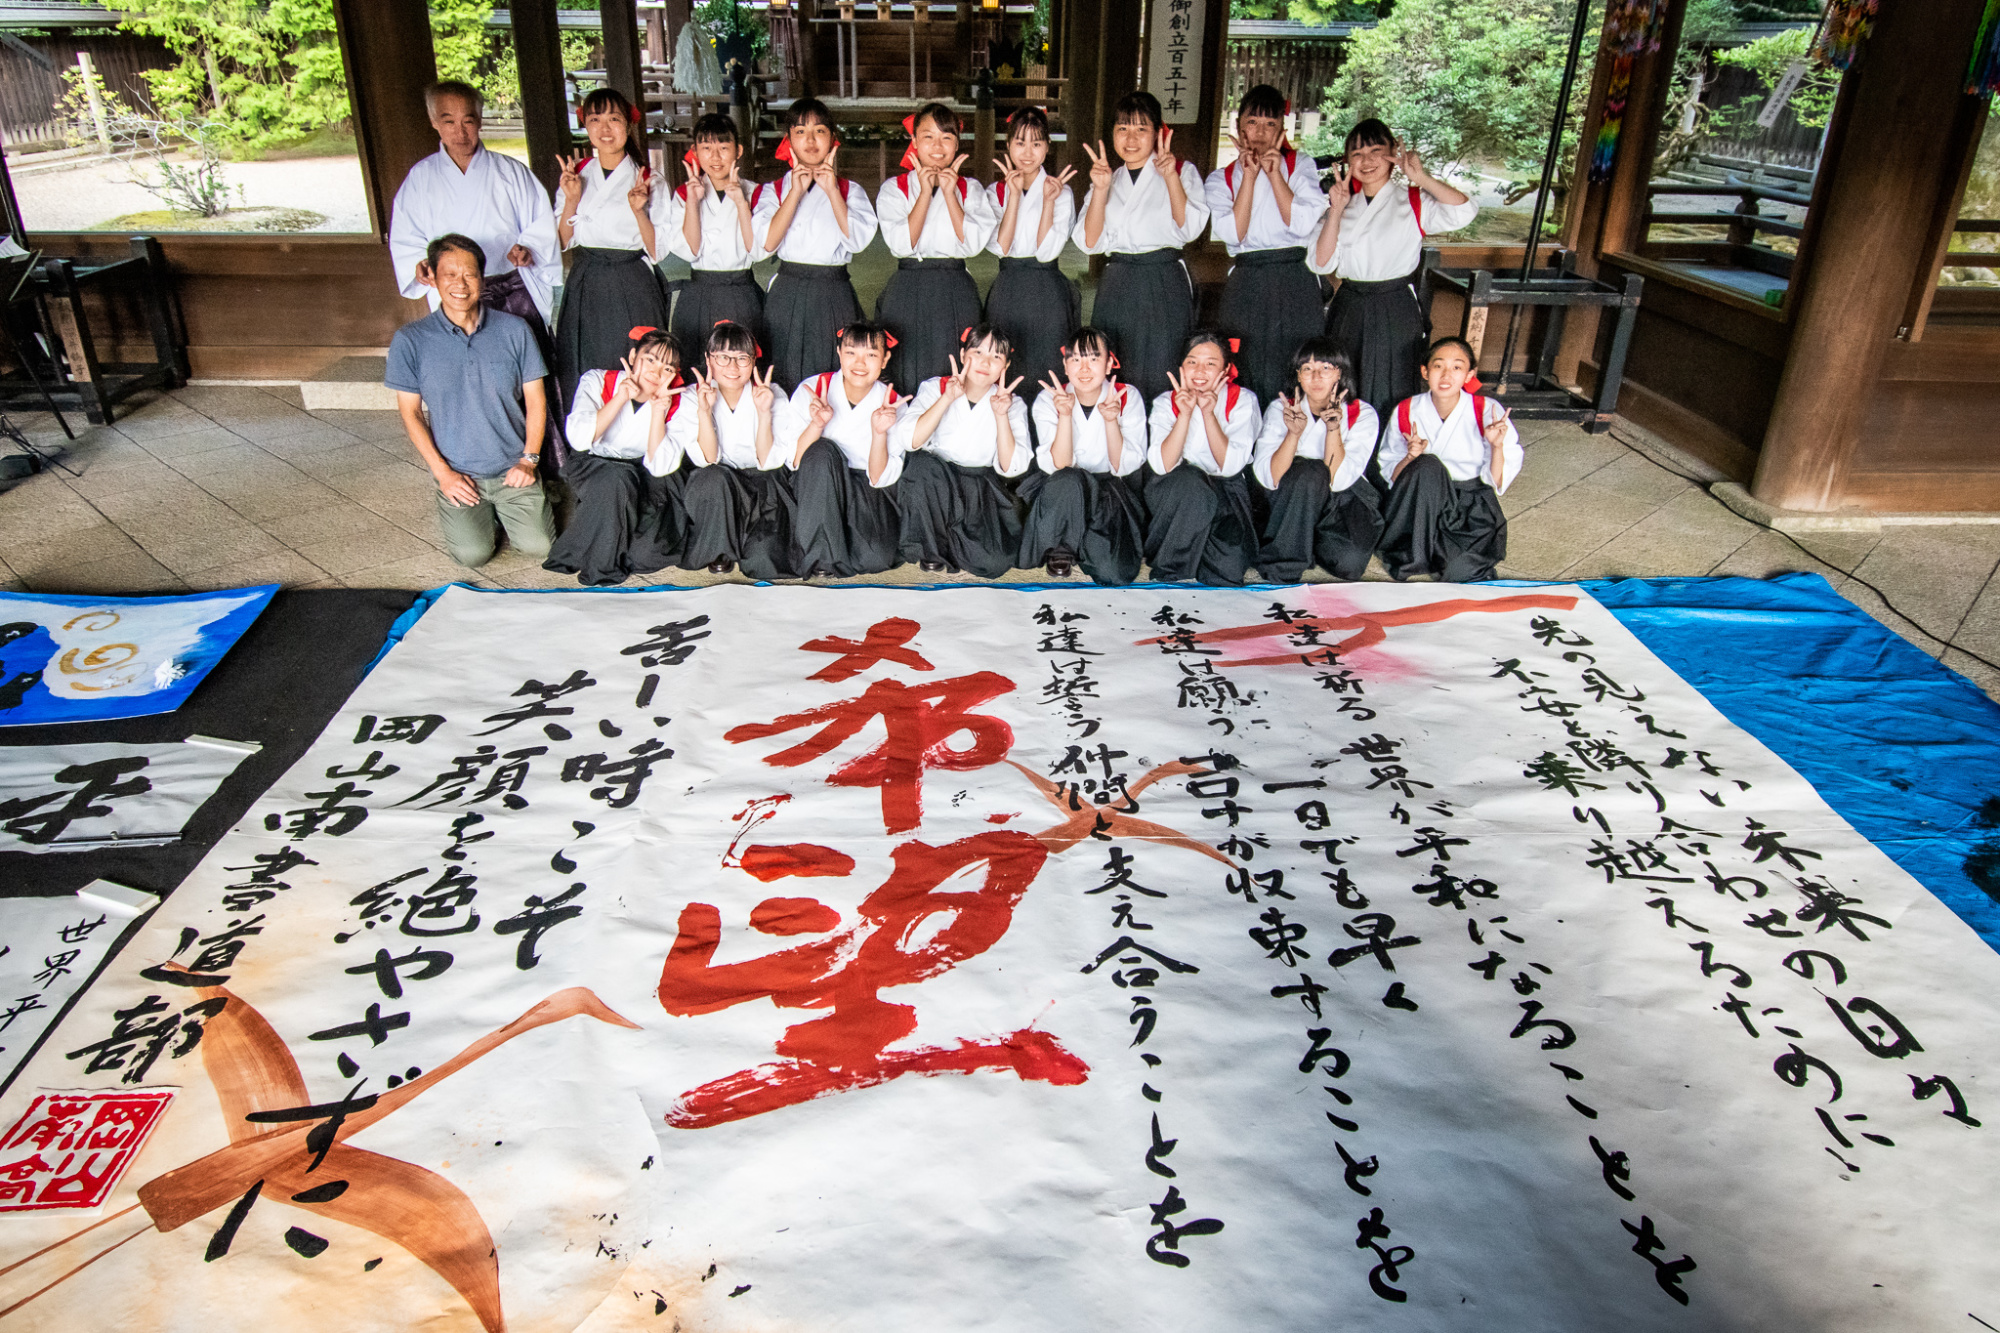 御創立百五十年
先の見えない未来の日々
不安と隣り合わせの
乗り越えるために…
私達は祈る 世界が平和になることを
私達は願う 一日でも早く
コロナが収束することを
私達は誓う 仲間と支え合うことを
希望
苦しい時こそ
笑顔を絶やさずに
岡山南書道部
平
世界平